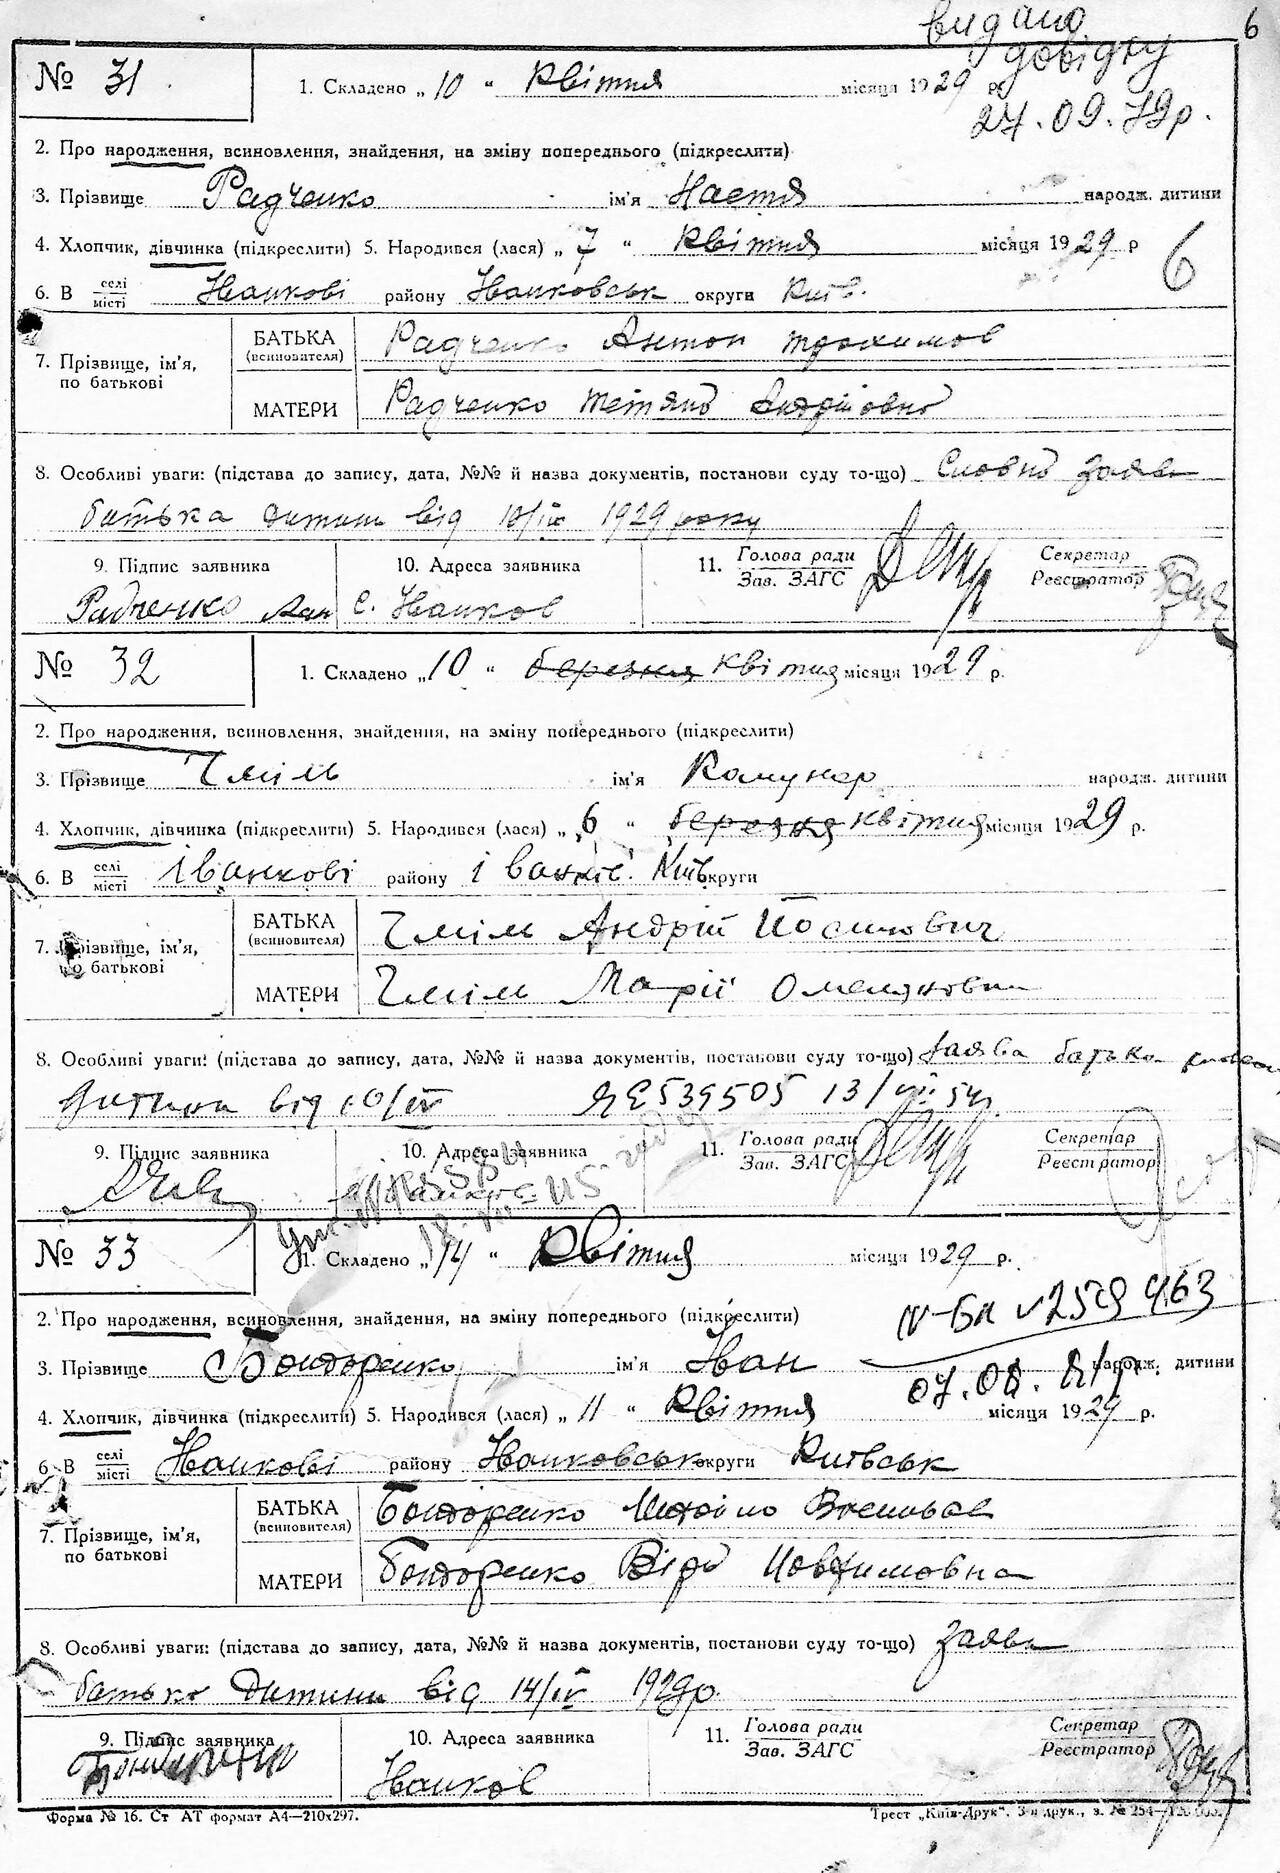 видано 6
довідку
27.09.79р.
№ 31 1. Складено „10 “ квітня місяця 1929 р.
2. Про народження, всиновлення, знайдення, на зміну попереднього (підкреслити)
3. Прізвище Радченко ім'я Настя народж. дитини
4. Хлопчик, дівчинка (підкреслити) 5. Народився (лася) „ 7 “ квітня місяця 1929 р
6
6. В селі/місті Іванкові району Іванковськ округи Київ.
7. Прізвище, ім'я, по батькові
БАТЬКА (всиновителя) Радченко Антон Трохимов
МАТЕРИ Радченко Тетяна Андріївна
8. Особливі уваги: (підстава до запису, дата, №№ й назва документів, постанови суду то-що) Словна заява
батька дитини від 10/IV 1929 року
9. Підпис заявника 10. Адреса заявника 11. Голова ради Секретар
Зав. ЗАГС Реєстратор
Радченко с. Іванков
№ 32 1. Складено „10 “ березня квітня місяця 1929 р.
2. Про народження, всиновлення, знайдення, на зміну попереднього (підкреслити)
3. Прізвище Чміль ім'я Комунар народж. дитини
4. Хлопчик, дівчинка (підкреслити) 5. Народився (лася) „ 6 “ березня квітня місяця 1929 р.
6. В селі/місті Іванкові району Іванків. Київ округи
7. Прізвище, ім'я, по батькові
БАТЬКА (всиновителя) Чміль Андрій Йосипович
МАТЕРИ Чміль Марії Омеляновни
8. Особливі уваги: (підстава до запису, дата, №№ й назва документів, постанови суду то-що) Заява батька
дитини від 10/IV 539505 13/VII 54р.
9. Підпис заявника 10. Адреса заявника 11. Голова ради Секретар
Зав. ЗАГС Реєстратор
№ 33 1. Складено „14 “ квітня місяця 1929 р.
2. Про народження, всиновлення, знайдення, на зміну попереднього (підкреслити)
3. Прізвище Бондоренко ім'я Іван народж. дитини
4. Хлопчик, дівчинка (підкреслити) 5. Народився (лася) „ 11 “ квітня місяця 1929 р.
6. В селі/місті Іванкові району Іванковськ округи Київськ
7. Прізвище, ім'я, по батькові
БАТЬКА (всиновителя) Бондоренко Михайло Васильов
МАТЕРИ Бондоренко Віра Йовхимовна
8. Особливі уваги: (підстава до запису, дата, №№ й назва документів, постанови суду то-що) заява
батько дитини від 14/IV 1929р.
9. Підпис заявника 10. Адреса заявника 11. Голова ради Секретар
Зав. ЗАГС Реєстратор
Іванков
Форма № 16. Ст АТ формат А4—210х297. Трест „Київ-Друк“. 3-я друк., з. № 254